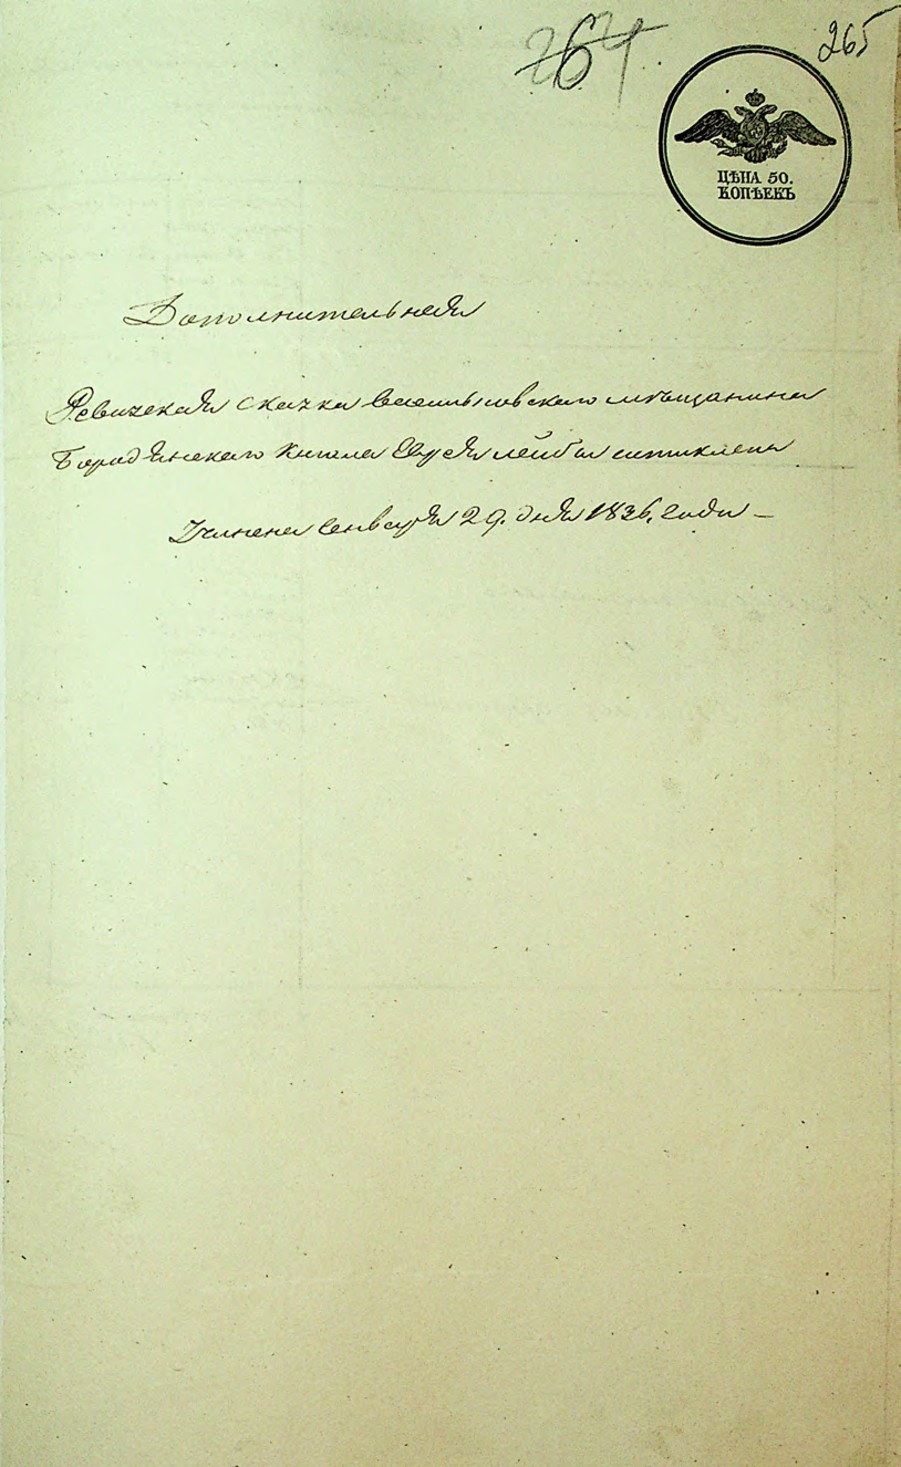 264
265
ЦѢНА 50.
КОПѢЕКЪ
Дополнительная
Ревизская сказка Васильковскаго мѣщанина
Бородянскаго Кагала
Учинена Генваря 29. дня 1836. года –